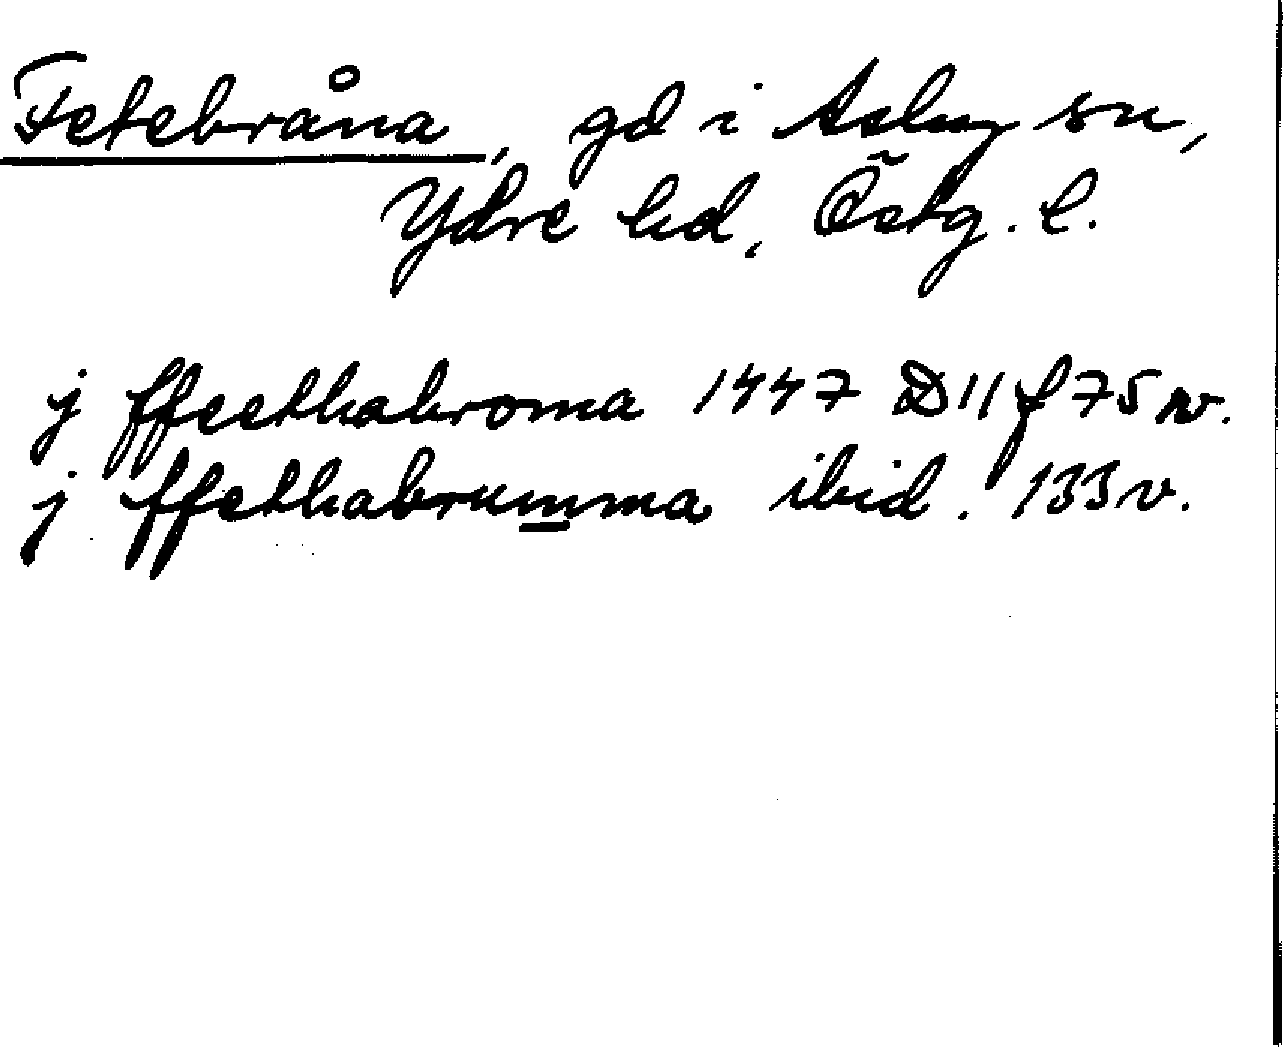 Fetebråna, gd i Asby sn,
Ydre hd, Östg. l.
j ffeethabroma 1447 D 11 f 75 v.
j ffethabrumma ibid. 133 v.